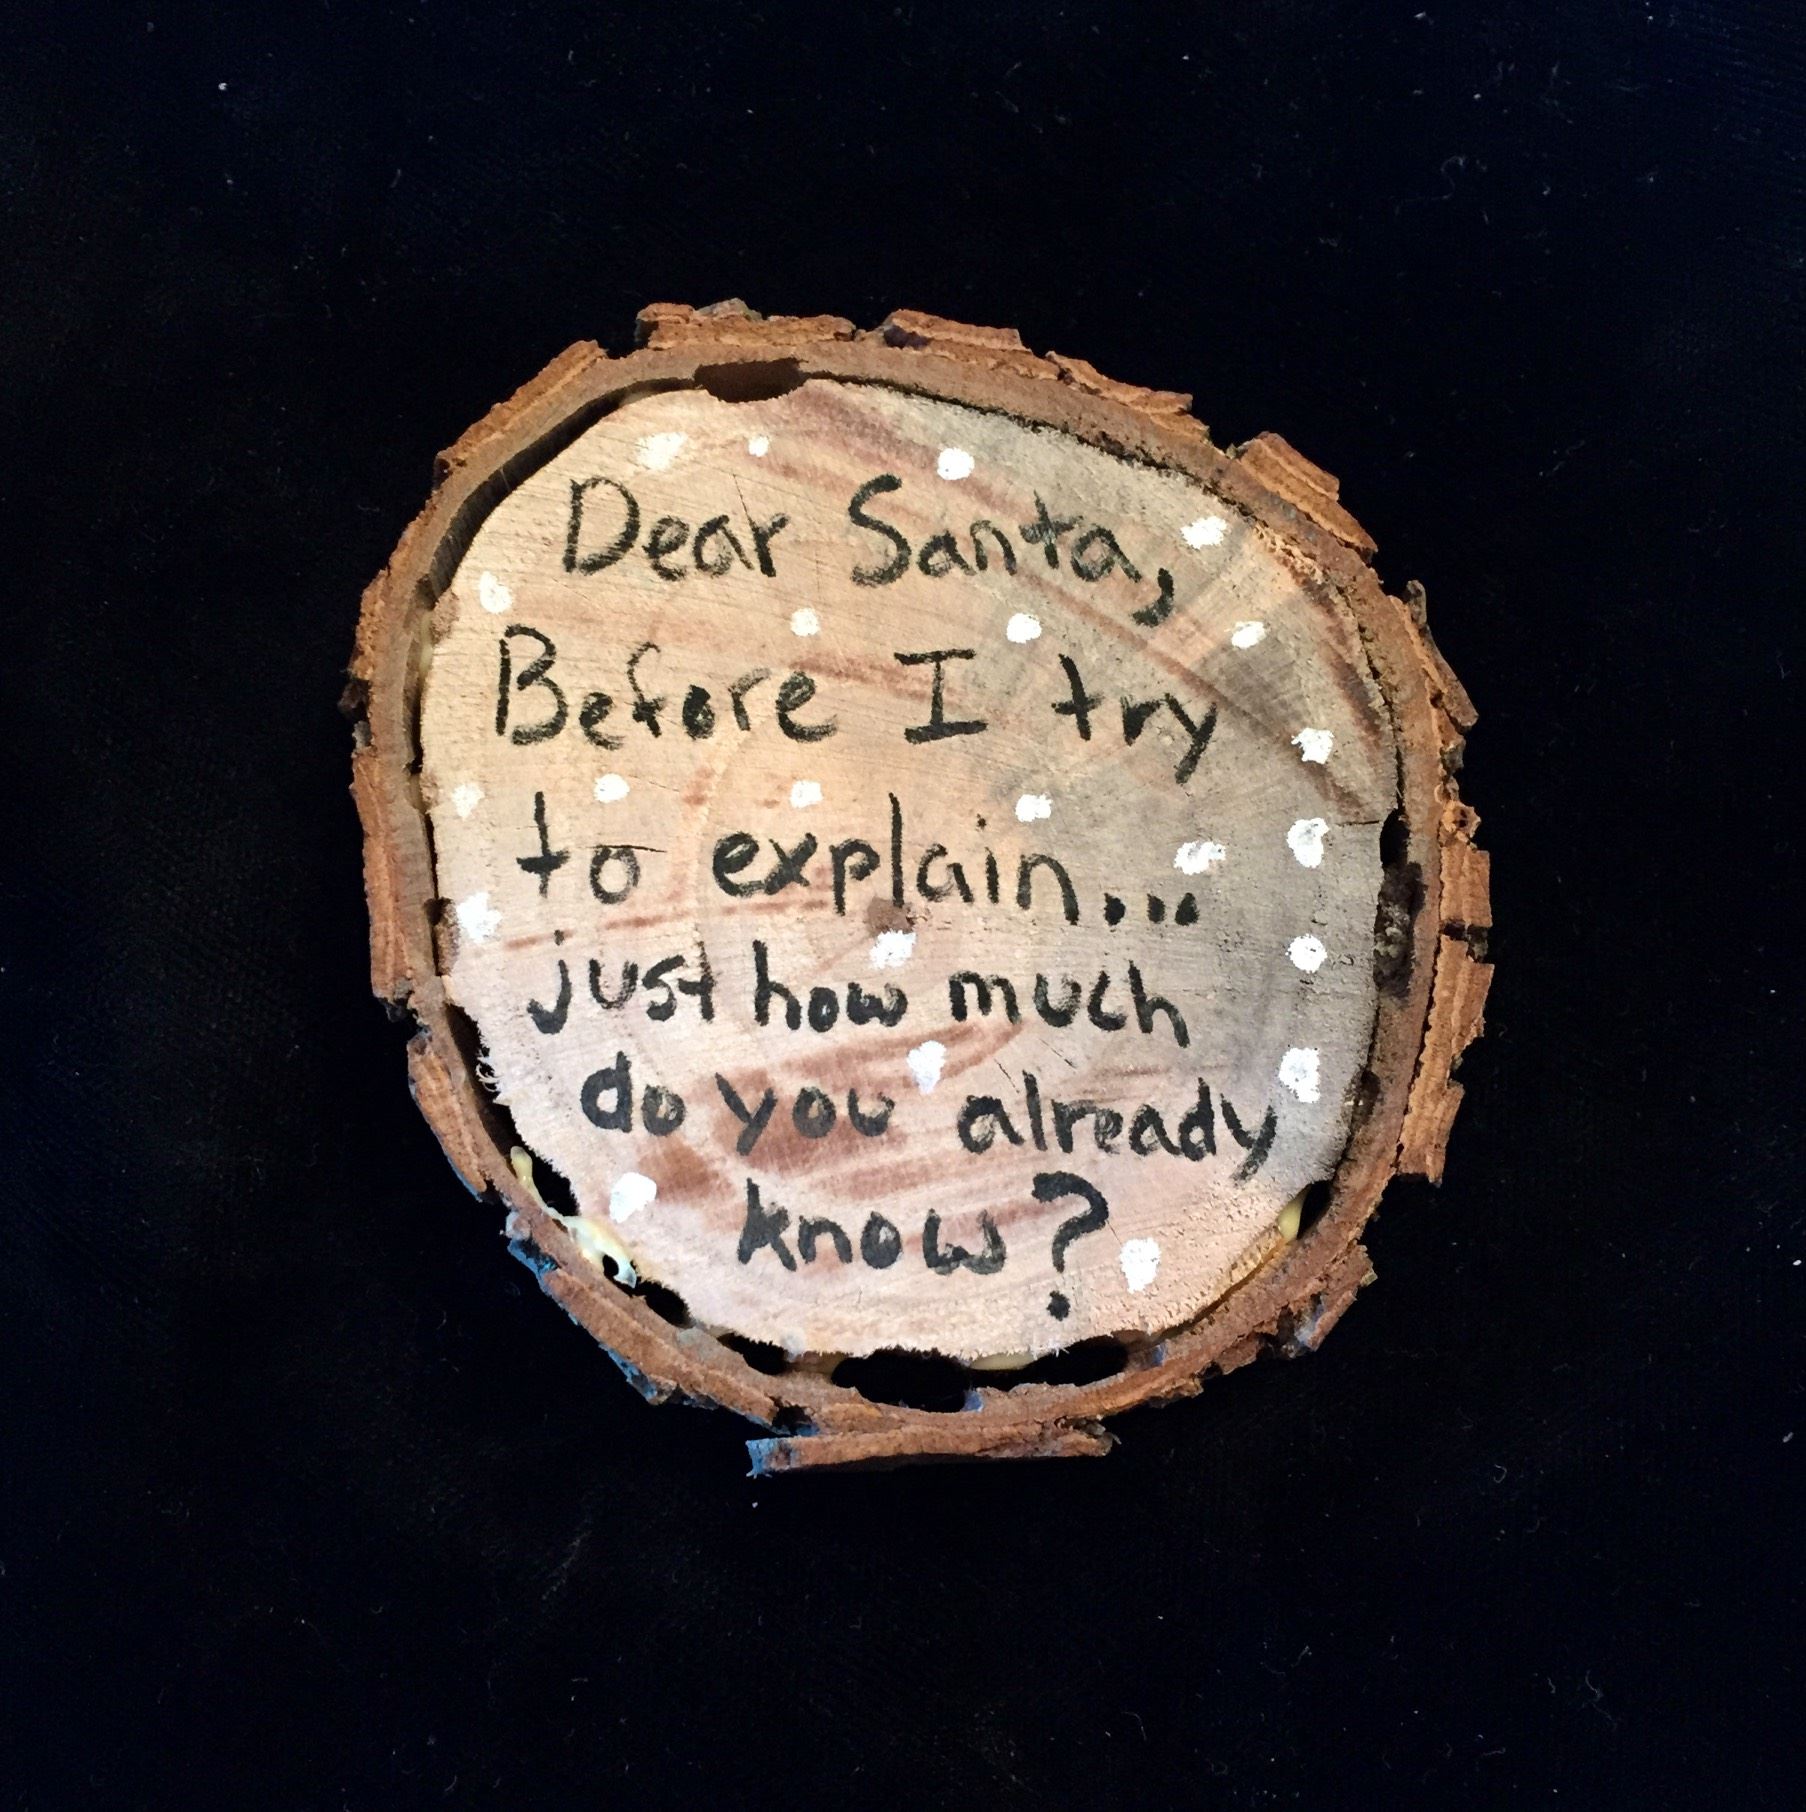 Dear Santa,
Before I try
to explain...
just how much
do you already
know?